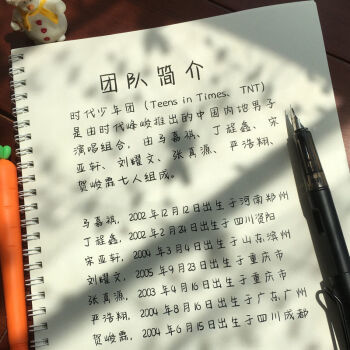 团队简介
时代少年团（Teens in Times、TNT）
是由时代峰峻推出的中国内地男子
演唱组合，由马嘉祺、丁程鑫、宋
亚轩、刘耀文、张真源、严浩翔、
贺峻霖七人组成。
马嘉祺，2002年12月12日出生于河南郑州
丁程鑫，2002年2月24日出生于四川资阳
宋亚轩，2004年3月4日出生于山东滨州
刘耀文，2005年9月23日出生于重庆市
张真源，2003年4月16日出生于重庆市
严浩翔，2004年8月16日出生于广东广州
贺峻霖，2004年6月15日出生于四川成都